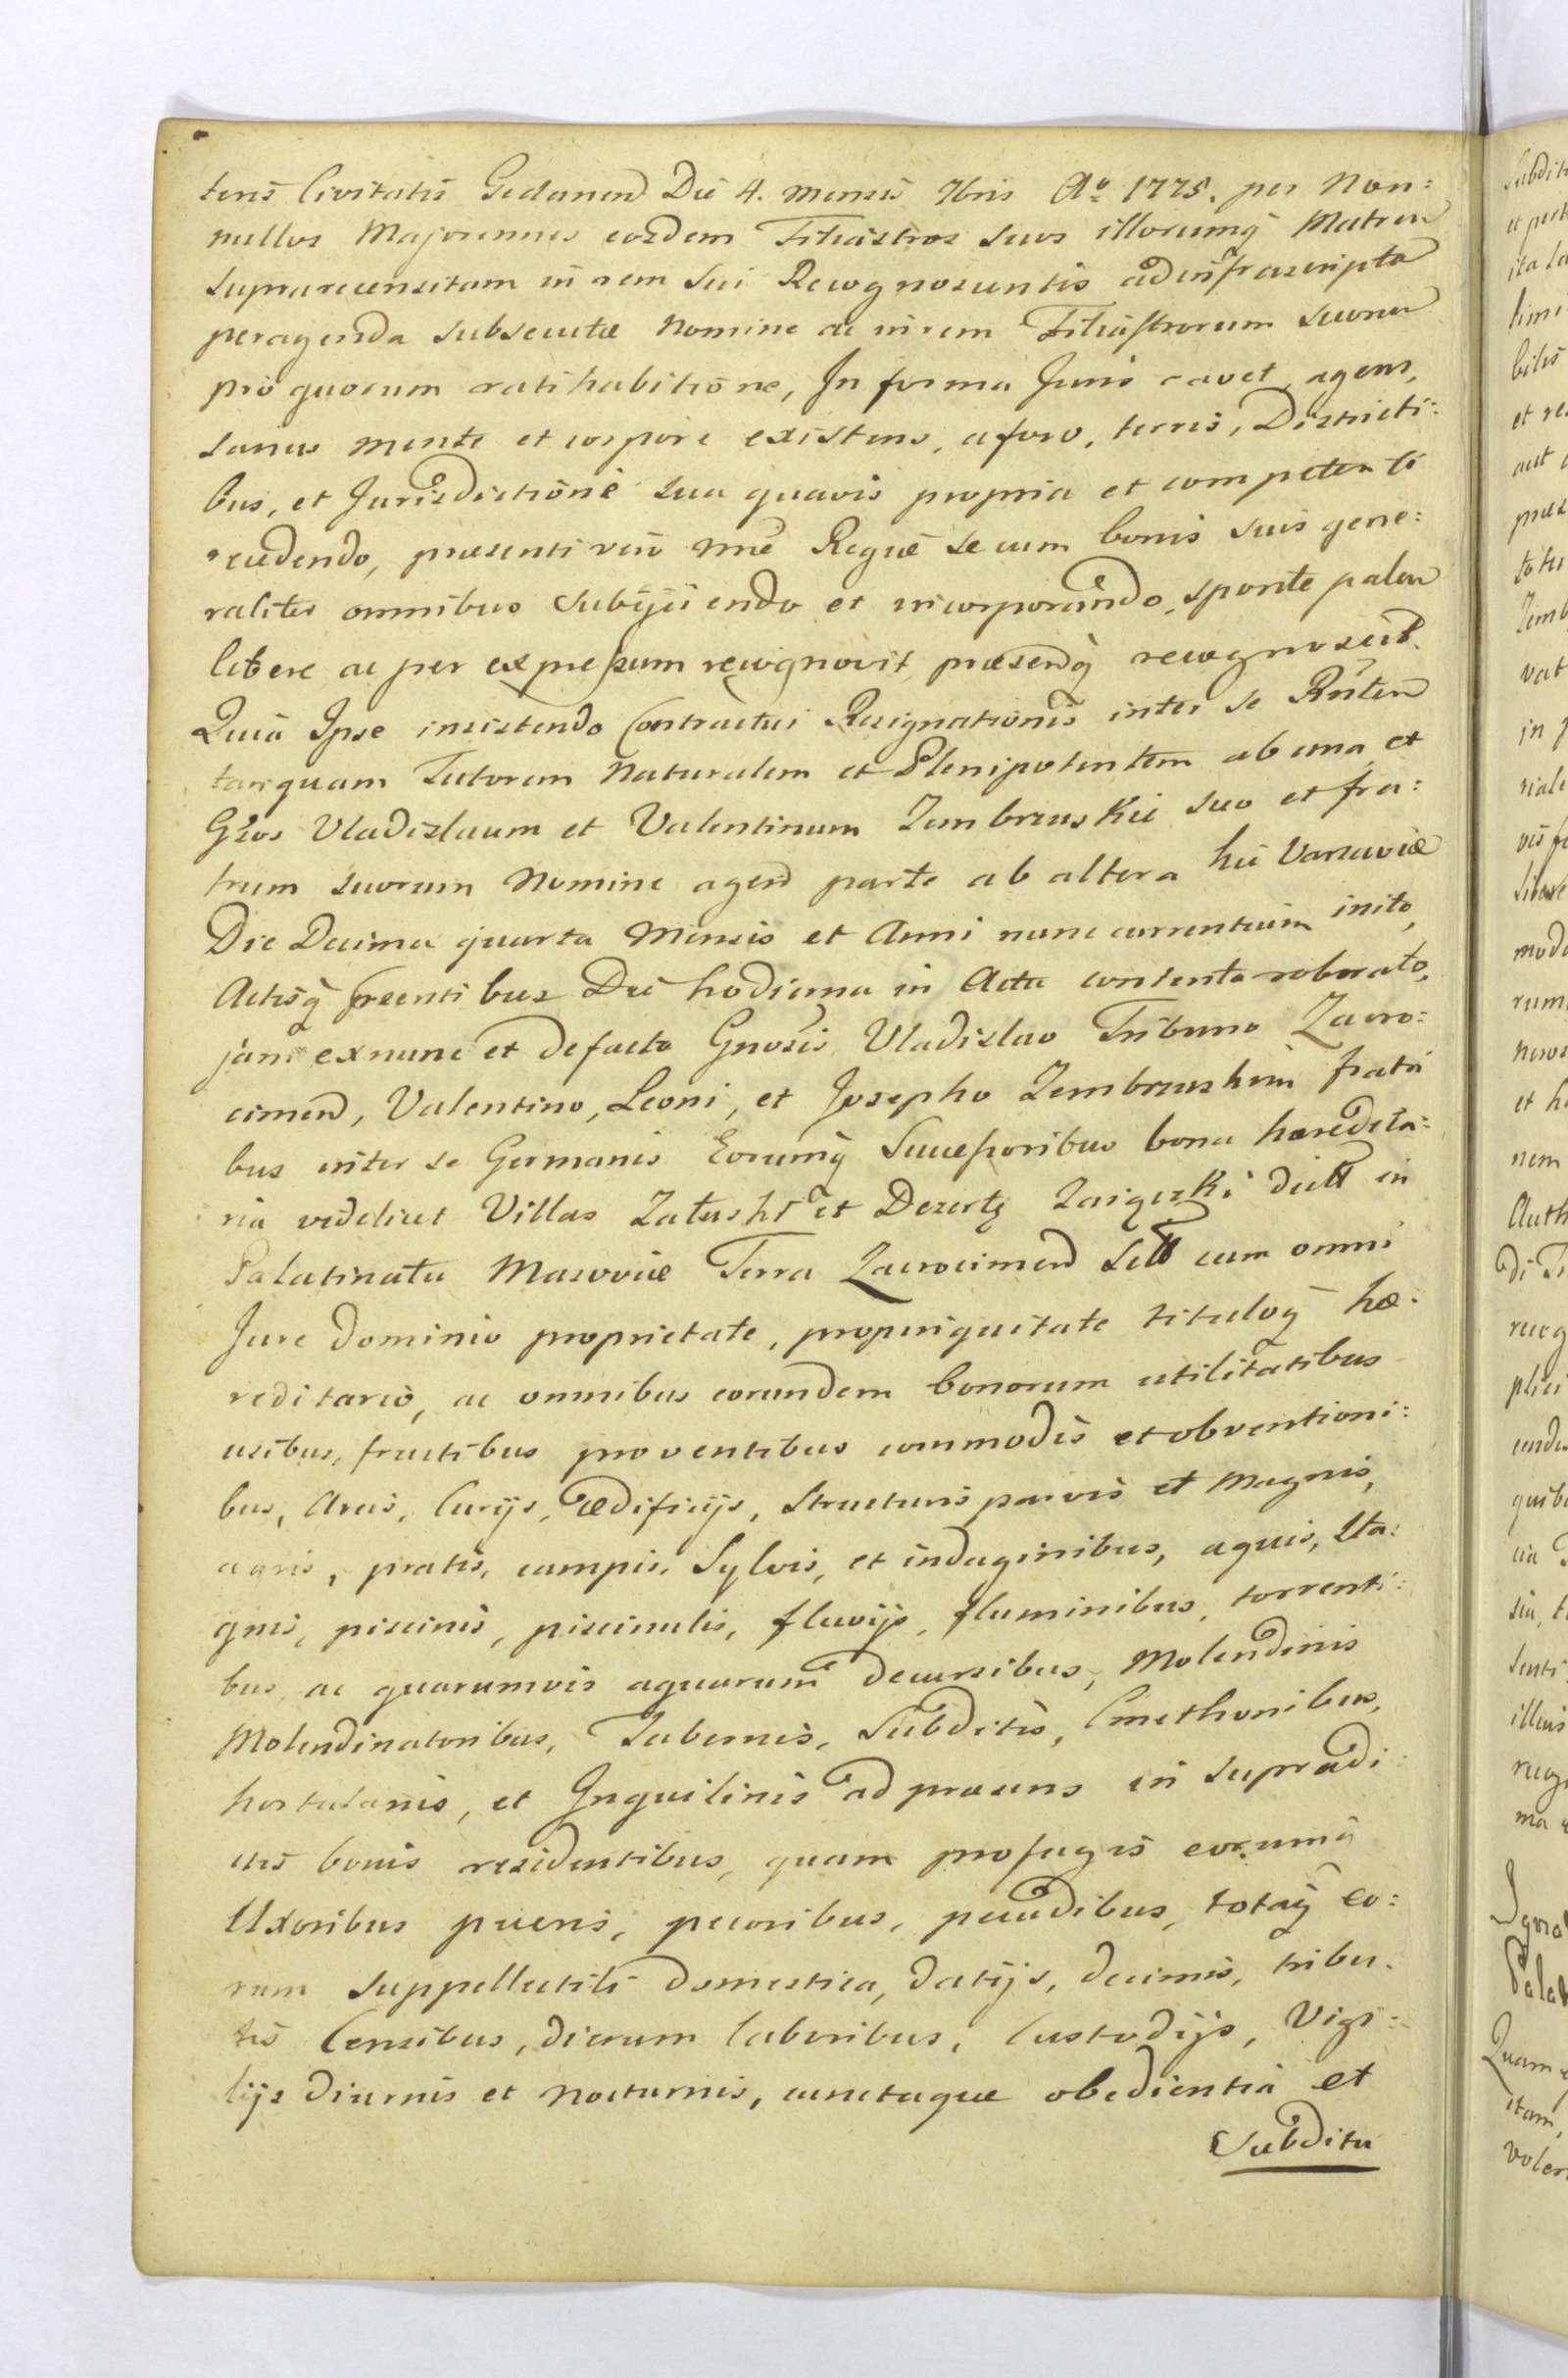 teris Civitatis Gedanen Die 4. mensis Xbris Ao 1775. per Non:
nullos Majorennes eosdem Filiastros suos illorumq Matrem
suprarecensitam in rem sui Recognoscentis ad infrascripta
peragenda subsecutae nomine ac in rem Filiastrorum suorum
pro quorum ratihabitione, In forma Juris cavet, agens,
sanus mente et corpore existens, a foro, terris, Districti:
bus, et Jurisdictione sua quavis propria et competenti
recedendo, praesenti vero mne Regnē se cum bonis suis gene:
raliter omnibus subijciendo et incorporando, sponte palam
libere ac per expressum recognovit, praesentq recognoscit.
Quia Ipse insistendo Contractui Resignationis inter se Rnten
tanquam Tutorem naturalem et Plenipotentem ab una et
Gsos Vladislaum et Valentinum Zembrzuskie suo et fra:
trum suorum Nomine agen parte ab altera hic Varsaviae
Die Decima quarta Mensis et Anni nunc currentium inito,
Actisq preentibus Die hodierna in Acta contento roborato,
jam exnunc et defacto Gnosis Vladislao Tribuno Zacro:
cimen, Valentino, Leoni, et Josepho Zembrzuskim fratri
bus inter se Germanis Eorumq Successoribus bona haeredita:
ria videlicet Villas Załuski et Dezerty Zaigrzki dictt in
Palatinatu Masoviae Terra Zacrocimen sitt cum omni
Jure dominio proprietate, propinquitate tituloq hae:
reditario, ac omnibus eorundem bonorum utilitatibus
usibus, fructibus proventibus commodis et obventioni:
bus, Areis, Curijs, aedificijs, structuris parvis et magnis,
agris, pratis, campis, Sylvis, et indaginibus, aquis, sta:
gnis, piscinis, piscinulis, fluvijs, fluminibus, torrenti:
bus, ac quarumvis aquarum decursibus, Molendinis
Molendinatoribus, Tabernis, Subditis, Cmethonibus,
hortulanis, et Inquilinis ad praesens in supradi:
ctis bonis residentibus, quam profugis eorumq
Uxoribus pueris, pecoribus, pecudibus, totaq eo:
rum suppellectili domestica, datijs, decimis, tribu:
tis Censibus, dierum laboribus, Custodijs, Vigi:
lijs diurnis et nocturnis, cunctaque obedientia et
Subdita